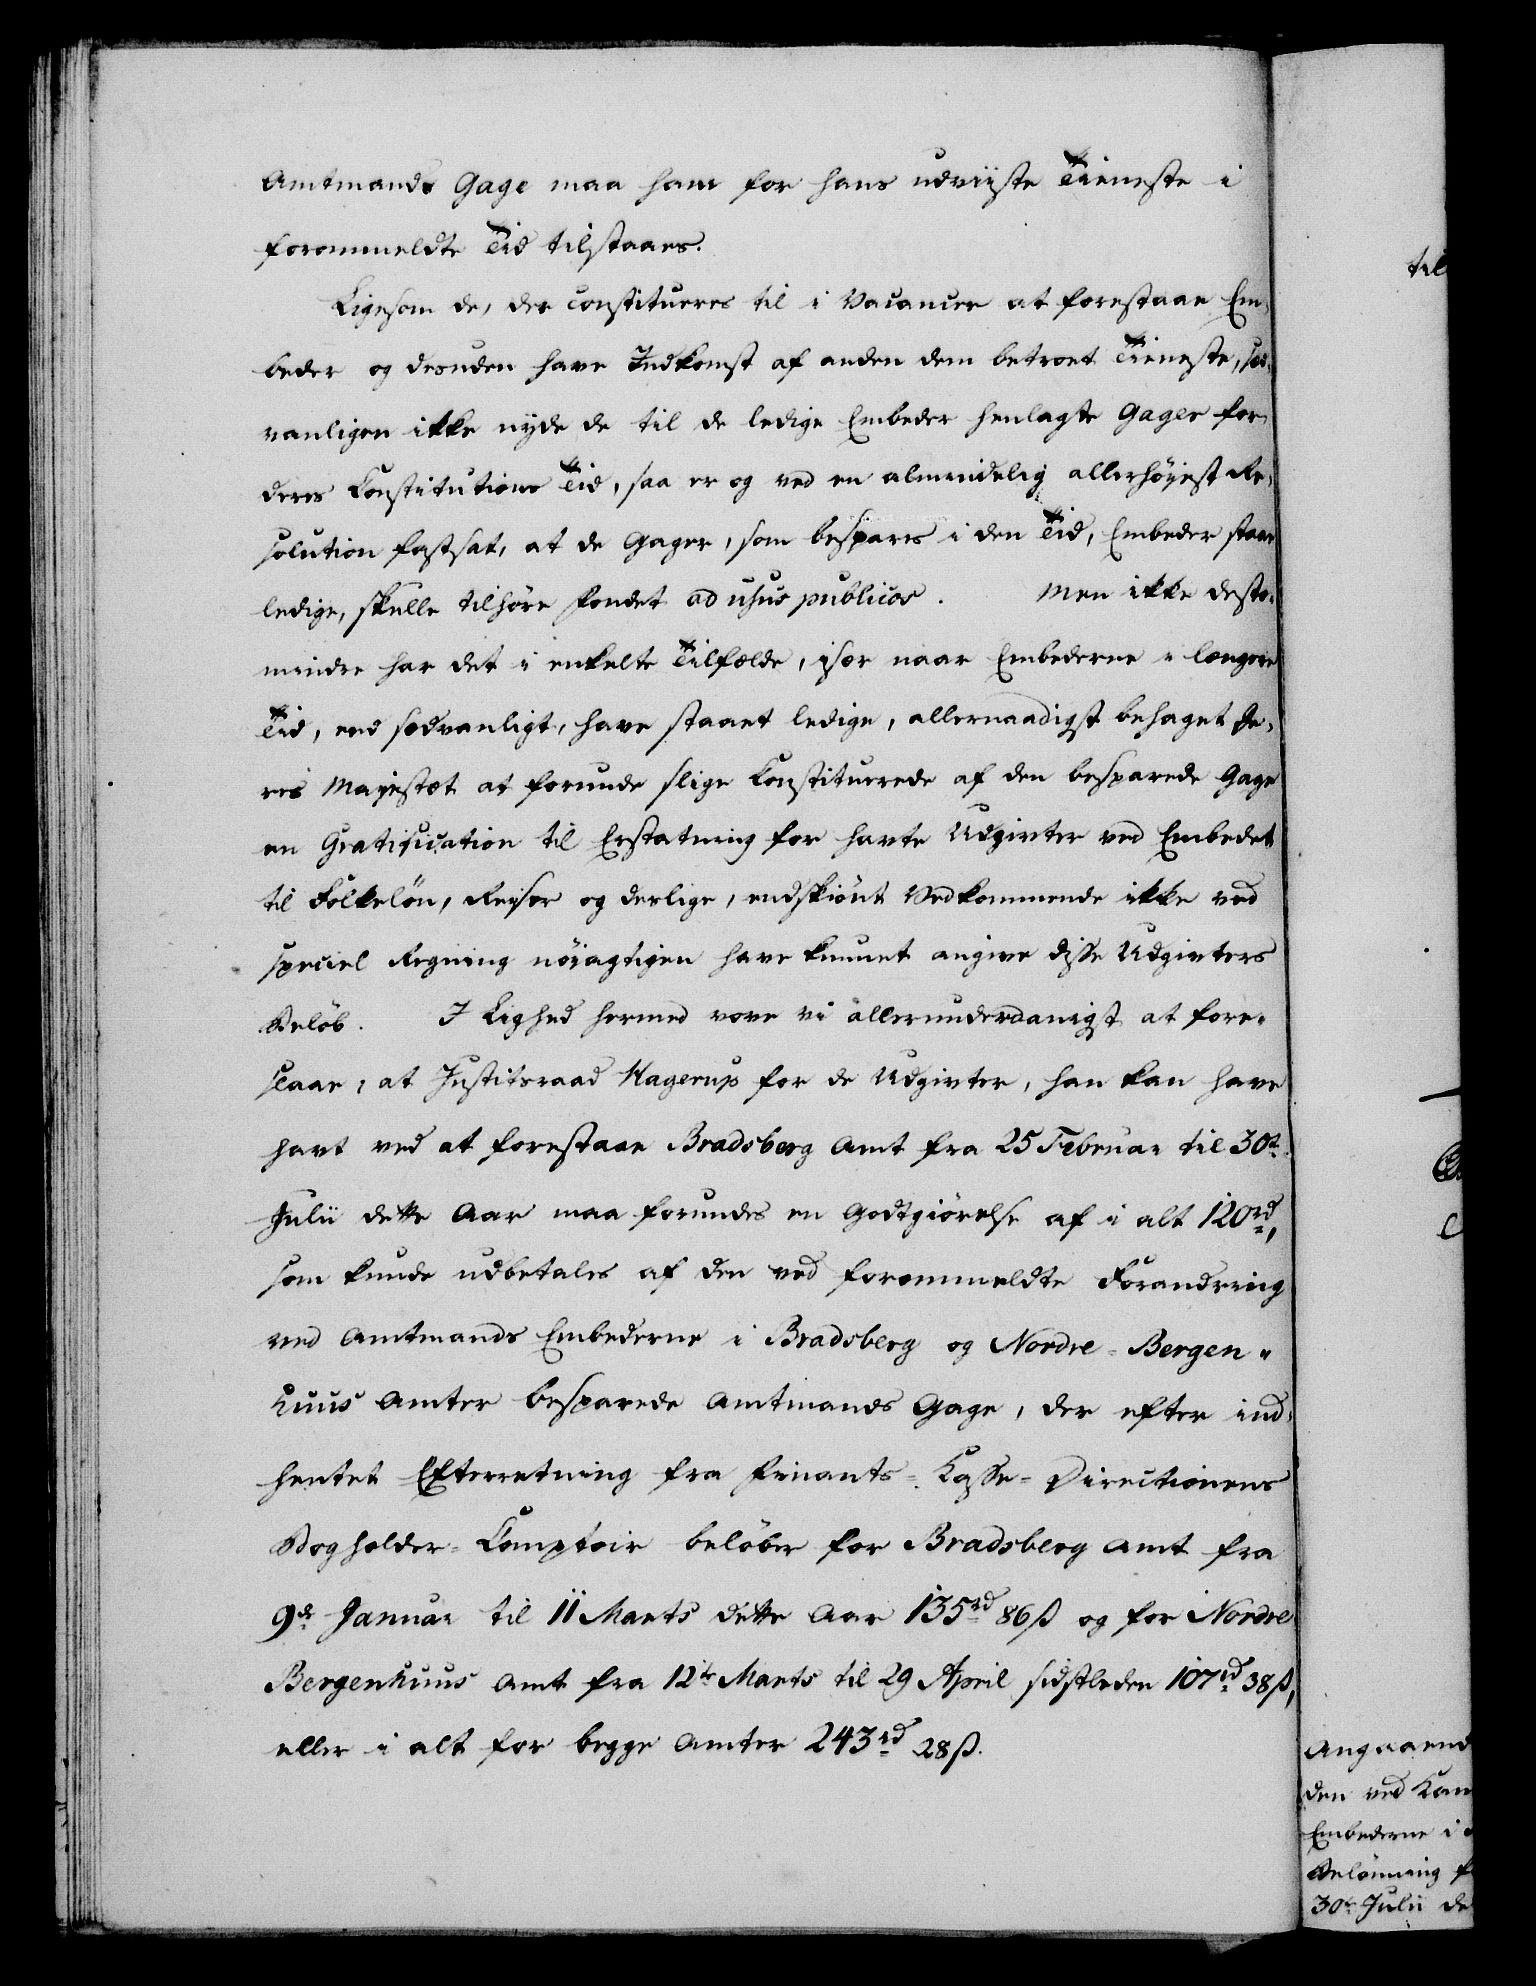 Amtmands Gage maa ham for hans udviiste Tieneste i
forommeldte Tid tilstaaes.
Ligesom de, der constitueres til i Vacancer at forestaae Em-
beder og desuden have Indkomst af anden dem betroet Tieneste, sæd-
vanligen ikke nyde de til de ledige Embeder henlagte Gager for
deres Constitutions Tid, saa er og ved en almindelig allerhöyest Re-
solution fastsat, at de Gager, som bespares i den Tid, Embeder staae
ledige, skulle tilhöre fondet ad usus publicos. Men ikke desto-
mindre har det i enkelte Tilfælde, især naar Embederne i længere
Tid, end sædvanligt, have staaet ledige, allernaadigst behaget De-
res Majestæt at forunde slige Constituerede af den besparede Gage
en Gratification til Erstatning for havte Udgivter ved Embedet
til Folkelön, Reiser og deslige, endskiönt Vedkommende ikke ved
speciel Regning nöiagtigen have kunnet angive disse Udgivters
Belöb. I Lighed hermed vove vi allerunderdanigst at fore-
slaae, at Justitsraad Hagerup for de Udgivter, han kan have
havt ved at forestaae Bradsberg Amt fra 25 Februar til 30te
Julii dette Aar maa forundes en Godtgiörelse af i alt 120rd,
som kunde udbetales af den ved forommeldte Forandring
ved Amtmands Embederne i Bradsberg og Nordre-Bergen-
huus Amter besparede Amtmands Gage, der efter ind-
hentet Efterretning fra Finants-Casse-Directionens
Bogholder-Comptoir belöber for Bradsberg Amt fra
9de Januar til 11 Marts dette Aar 135rd 86ß og for Nordre
Bergenhuus Amt fra 12te Marts til 29 April sidstleden 107rd 38ß,
eller i alt for begge Amter 243rd 28ß.
til
Angaaend
den ved Kon
Embederne i
Belönning f
30te Julii de